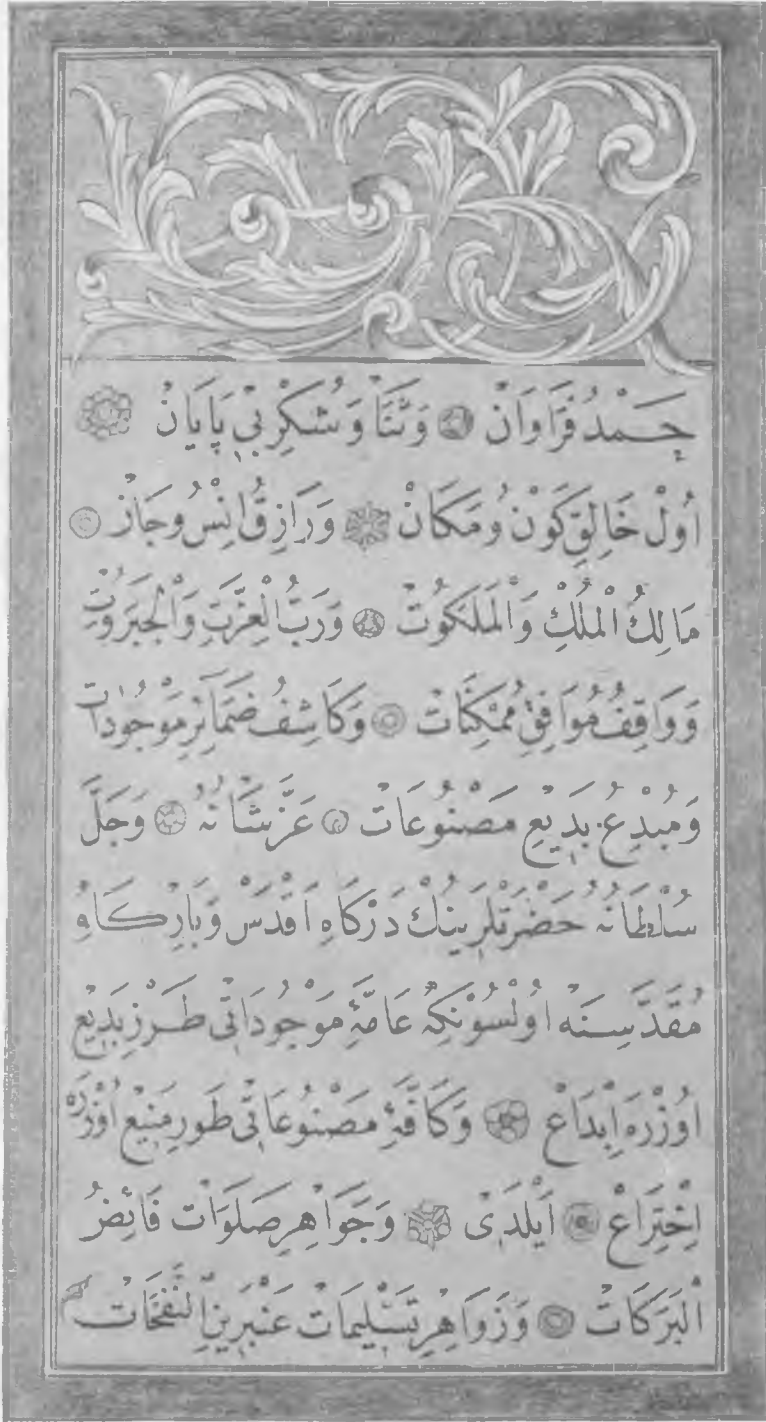 حَمْدُ فَرَاوَانْ وَثَنَا وَشُكْرِ بِي پَايَانْ
اُولْ خَالِقِ كَوْنُ ومَكَانْ وَرَازِقُ اِنْسُ وجَانْ
مَالِكُ الْمُلْكِ وَالْمَلَكُوتْ وَرَبُّ الْعِزَّتِ وَالْجَبَرُوتْ
وَوَاقِفُ مُوَافِقِ مُمْكِنَاتْ وَكَاشِفُ ضَمَائِرِ مَوْجُودَاتْ
وَمُبْدِعُ بَدِيعِ مَصْنُوعَاتْ عَزَّ شَانُهُ وَجَلَّ
سُلْطَانُهُ حَضْرَتْلَرِينُكْ دَرْكَاهِ اَقْدَسْ وَبَارِكَاهِ
مُقَدَّسِنَه اُولْسُونْكِه عَامَّهٔ مَوْجُودَاتِي طَرْزِ بَدِيعِ
اوُزْرَه اِبْدَاعْ وَكَافَّهٔ مَصْنُوعَاتِي طَورِ مَنِيعْ اُوزْرَه
اِخْتِرَاعْ اَيْلَدِى وَجَوَاهِرِ صَلَوَاتْ فَائِضُ
الْبَرَكَاتْ وَزَوَاهِرِ تَسْلِيمَاتْ عَنْبَرِينِ النَّفَحَاتْ